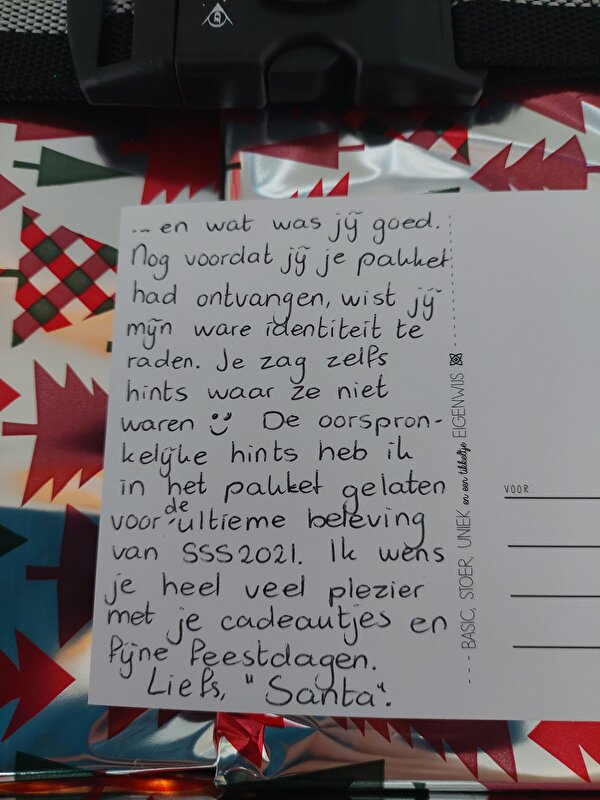 ... en wat was jij goed.
Nog voordat jij je pakket
had ontvangen, wist jij
mijn ware identiteit te
raden. Je zag zelfs
hints waar ze niet
waren :) De oorspron-
kelijke hints heb ik
in het pakket gelaten
voor de ultieme beleving
van SSS2021. Ik wens
je heel veel plezier
met je cadeautjes en
fijne feestdagen.
Liefs, "Santa".
BASIC, STOER, UNIEK en een tikkeltje EIGENWIJS
VOOR: